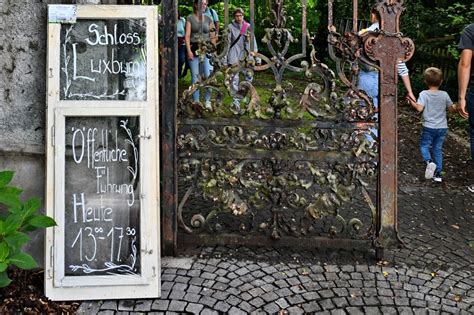 Schloss
Luxburg
Öffentliche
Führung
Heute
13⁰⁰-17.³⁰